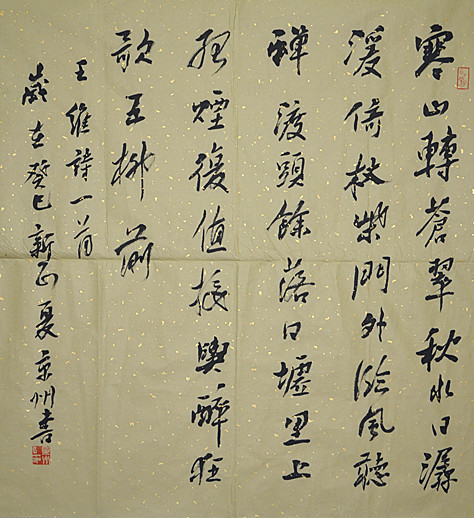 寒山轉蒼翠秋水日潺
湲倚杖柴門外臨風聽
蟬渡頭餘落日墟里上
孤煙復值接輿醉狂
歌五柳前
王維詩一首
歲在癸巳新正夏京州書